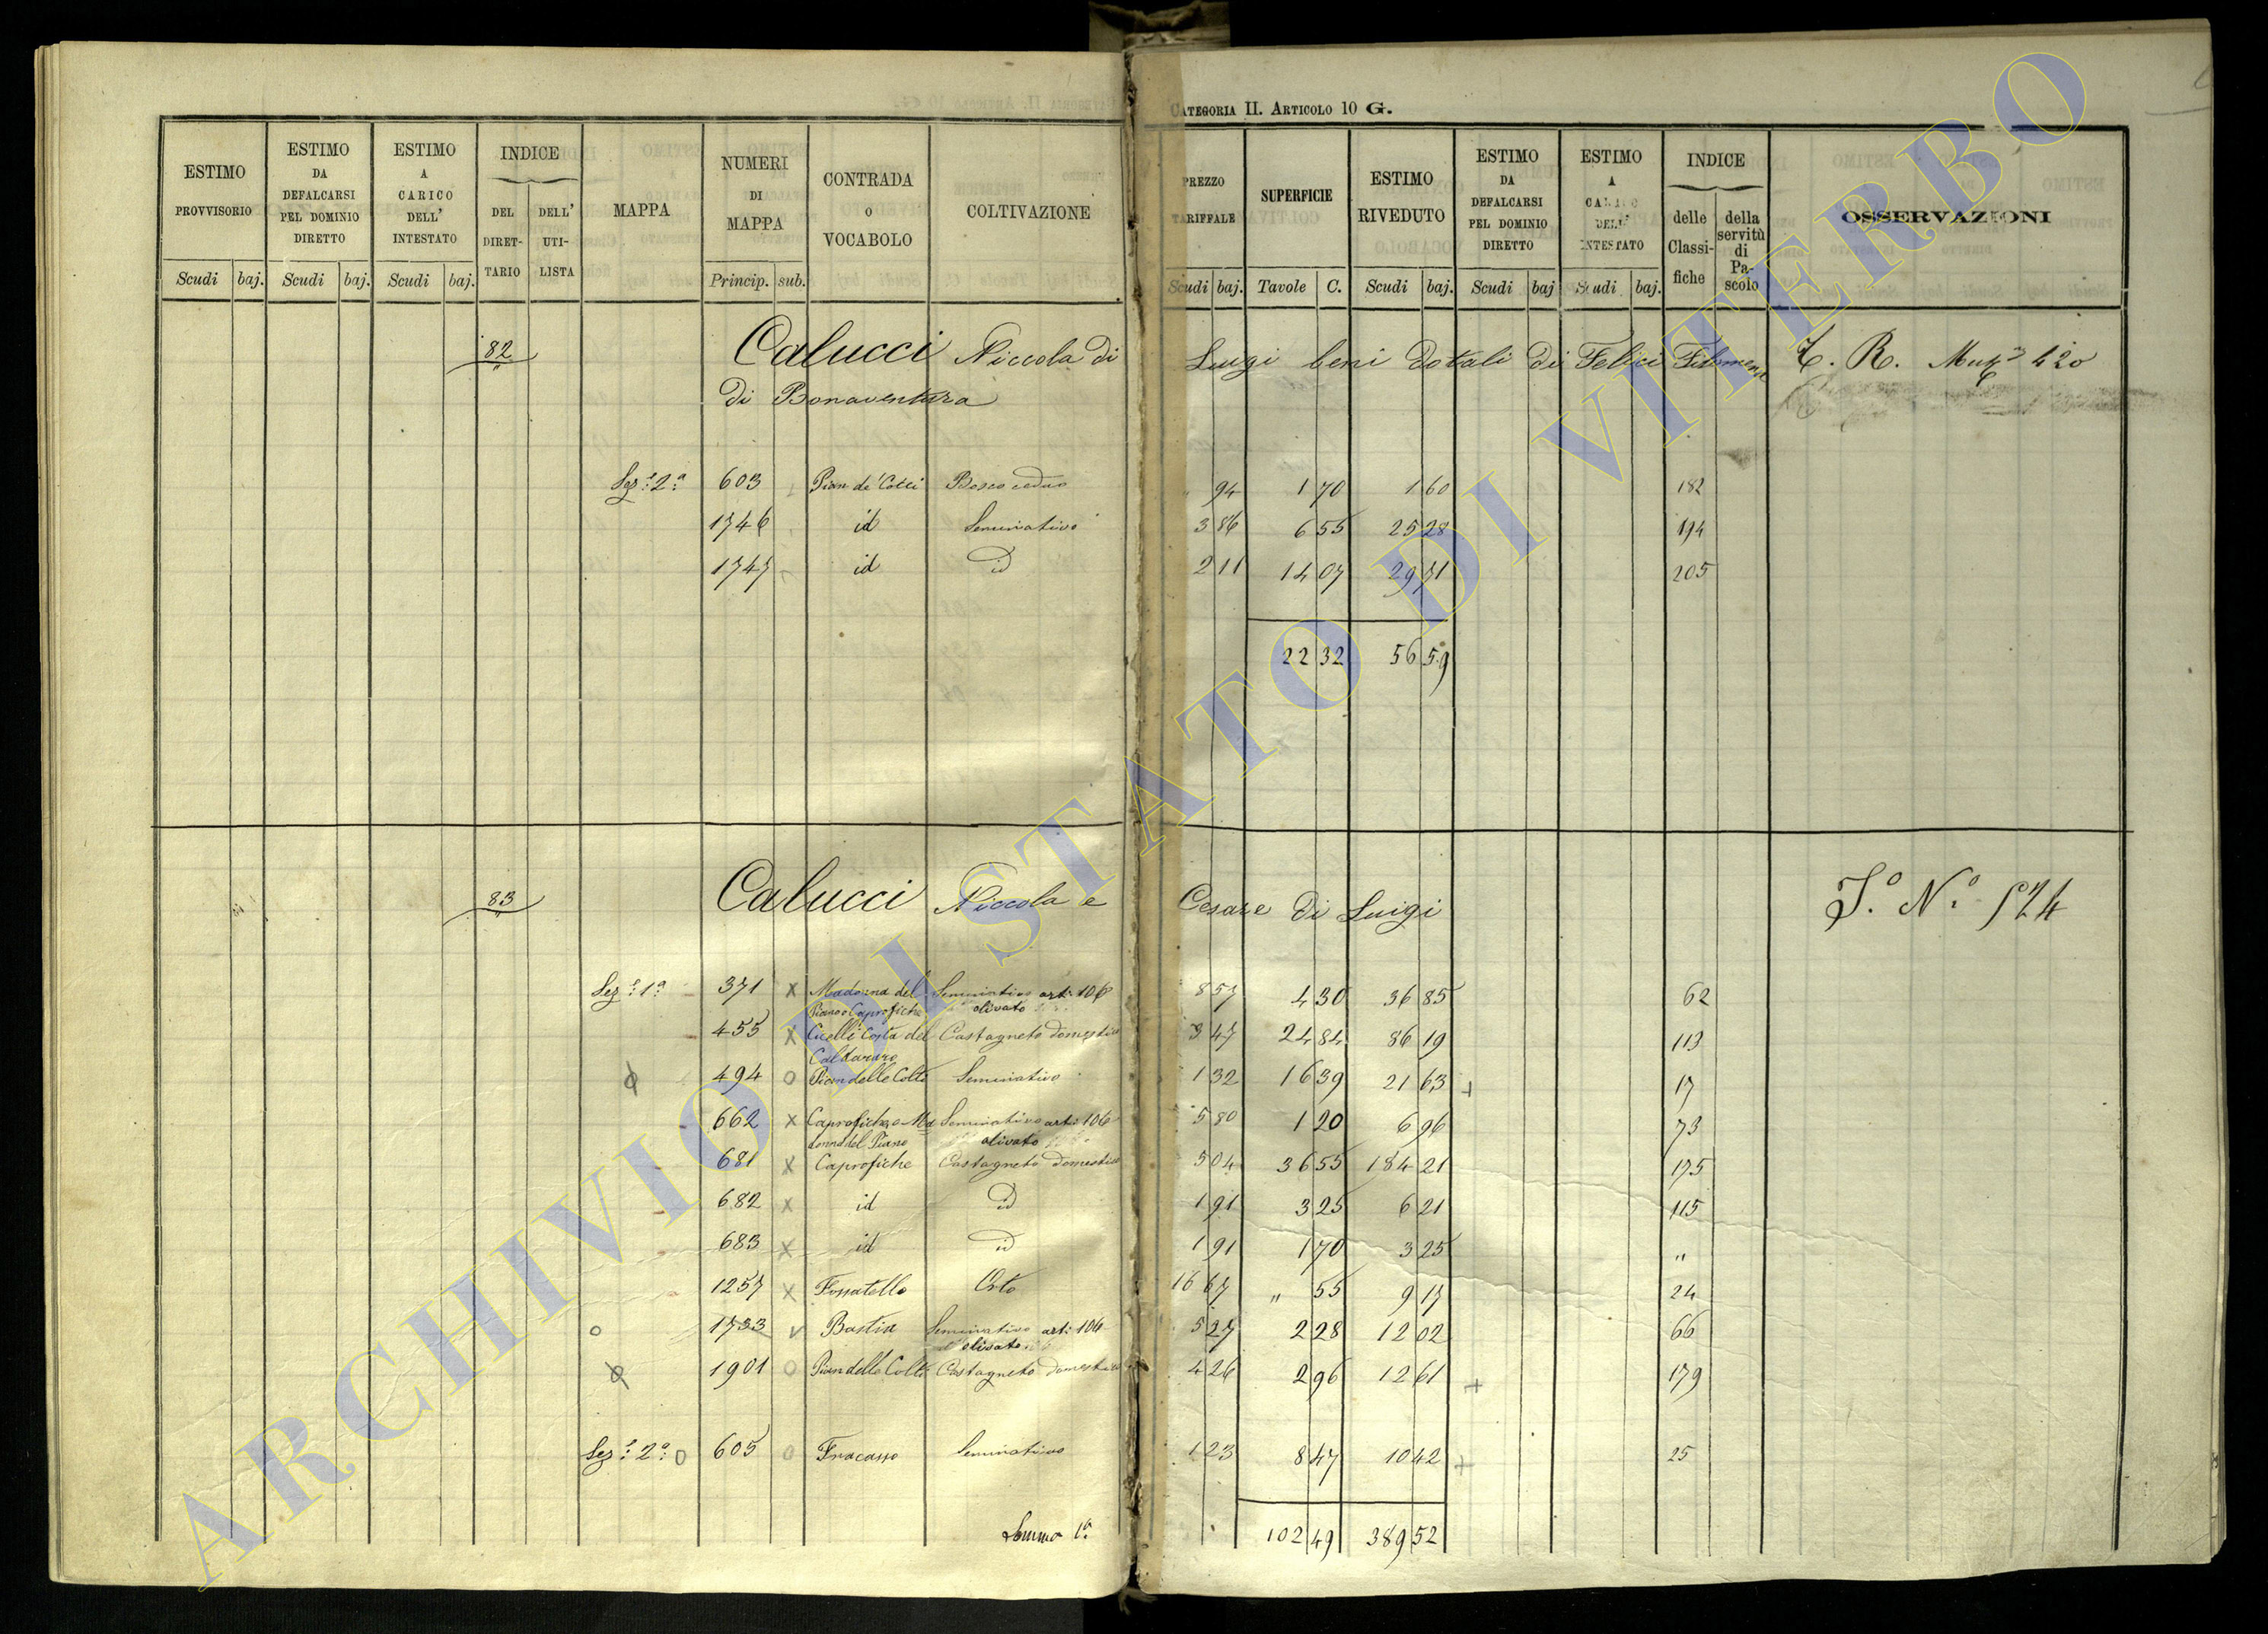 CATEGORIA II. ARTICOLO 10 G.
ESTIMO PROVVISORIO | ESTIMO DA DEFALCARSI PEL DOMINIO DIRETTO | ESTIMO A CARICO DELL' INTESTATO | INDICE DEL DIRETTARIO | DELL' UTILISTA | MAPPA | NUMERI DI MAPPA | CONTRADA O VOCABOLO | COLTIVAZIONE | PREZZO TARIFFALE | SUPERFICIE | ESTIMO RIVEDUTO | ESTIMO DA DEFALCARSI PEL DOMINIO DIRETTO | ESTIMO A CARICO DELL' INTESTATO | INDICE delle Classifiche | della servitù di Pascolo | OSSERVAZIONI
Scudi | baj. | Scudi | baj. | Scudi | baj. | Princip. | sub. | Scudi | baj. | Tavole | C. | Scudi | baj. | Scudi | baj | Scudi | baj.
82 Calucci Niccola di Luigi beni dotali di Felici Filomena T. R. 420
di Bonaventura
Sez.e 2.a 603 Pian de' Colli Bosco ceduo " 94 1 70 1 60 182
1746 id Seminativo 3 86 6 55 25 28 194
1747 id id 2 11 14 07 29 71 205
22 32 56 59
83 Calucci Niccola e Cesare di Luigi S.o N.o 524
Sez.e 1.a 371 x Madonna del Piano o Caprofiche Seminativo art: 106 olivato 8 57 4 30 36 85 62
455 x Cicelli Costa del Caldararo Castagneto domestico 3 47 24 84 86 19 113
494 o Pian delle Colle Seminativo 1 32 16 39 21 63 + 17
662 x Caprofiche o Madonna del Piano Seminativo art: 106 olivato 5 80 1 20 6 96 73
681 x Caprofiche Castagneto domestico 5 04 36 55 184 21 175
682 x id id 1 91 3 25 6 21 115
683 x id id 1 91 1 70 3 25 "
1257 x Fossatello Orto 16 67 " 55 9 17 24
o 1733 v Bastia Seminativo art: 106 olivato 5 27 2 28 12 02 66
1901 o Pian delle Colle Castagneto domestico 4 26 2 96 12 61 + 179
Sez.e 2.a o 605 o Fracasso Seminativo 1 23 8 47 10 42 + 25
Somma 1.a 102 49 389 52
ARCHIVIO DI STATO DI VITERBO